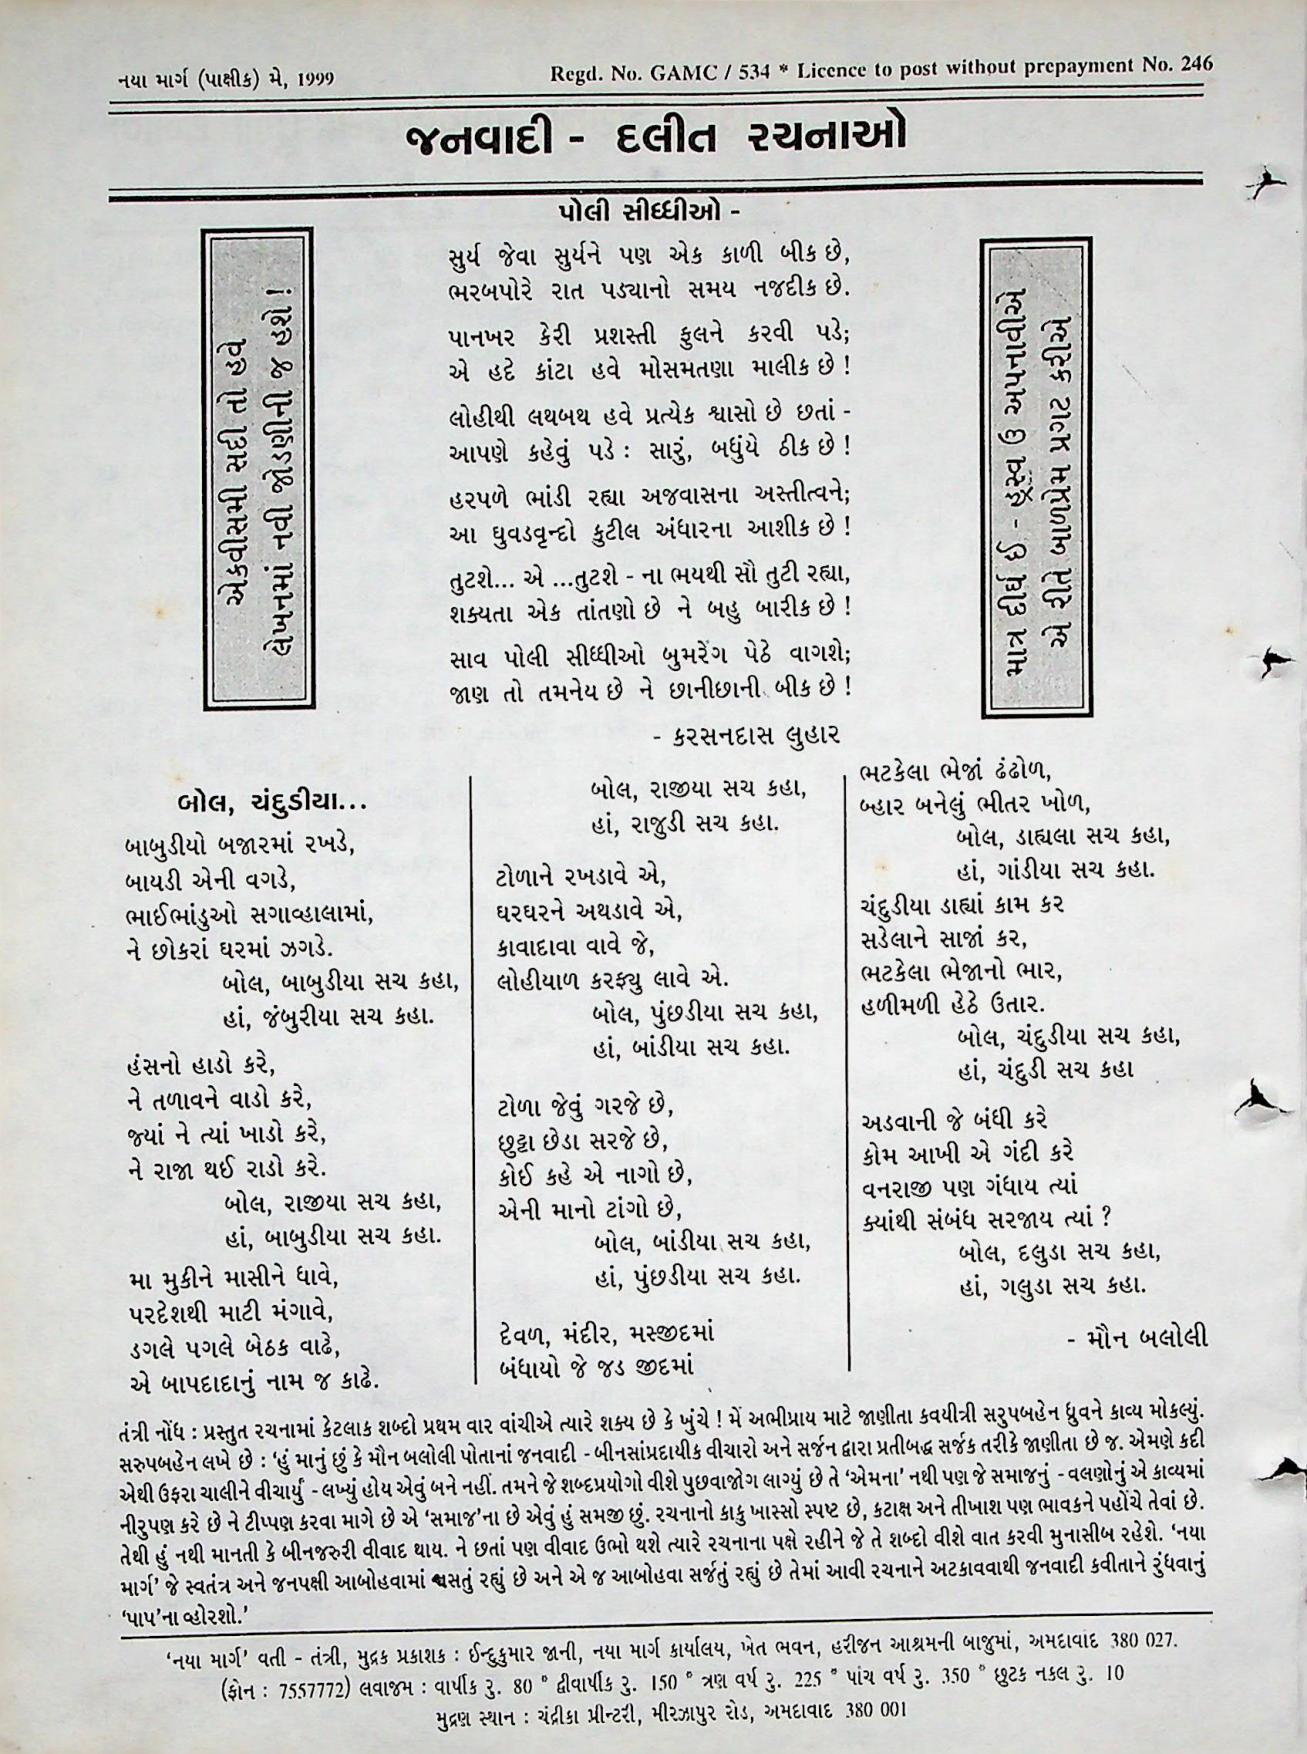 નયા માર્ગ (પાક્ષીક) મે, 1999
Regd. No. GAMC / 534 * Licence to post without prepayment No. 246
જનવાદી - દલીત રચનાઓ
એકવીસમી સદી તો હવે
લેખનમાં નવી જોડણીની જ હશે !
પોલી સીધ્ધીઓ -
સુર્ય જેવા સુર્યને પણ એક કાળી બીક છે,
ભરબપોરે રાત પડ્યાનો સમય નજદીક છે.
પાનખર કેરી પ્રશસ્તી ફુલને કરવી પડે;
એ હદે કાંટા હવે મોસમતણા માલીક છે !
લોહીથી લથબથ હવે પ્રત્યેક શ્વાસો છે છતાં -
આપણે કહેવું પડે : સારું, બધુંયે ઠીક છે !
હરપળે ભાંડી રહ્યા અજવાસના અસ્તીત્વને;
આ ઘુવડવૃન્દો કુટીલ અંધારના આશીક છે !
તુટશે... એ ...તુટશે - ના ભયથી સૌ તુટી રહ્યા,
શક્યતા એક તાંતણો છે ને બહુ બારીક છે !
સાવ પોલી સીધ્ધીઓ બુમરેંગ પેઠે વાગશે;
જાણ તો તમનેય છે ને છાનીછાની બીક છે !
- કરસનદાસ લુહાર
માત્ર દીર્ઘ ઈ - હ્રસ્વ ઉ અપનાવીએ
એ રીતે બાળપ્રેમ પ્રગટ કરીએ
બોલ, ચંદુડીયા...
બાબુડીયો બજારમાં રખડે,
બાયડી એની વગડે,
ભાઈભાંડુઓ સગાવ્હાલામાં,
ને છોકરાં ઘરમાં ઝગડે.
બોલ, બાબુડીયા સચ કહા,
હાં, જંબુરીયા સચ કહા.
હંસનો હાડો કરે,
ને તળાવને વાડો કરે,
જ્યાં ને ત્યાં ખાડો કરે,
ને રાજા થઈ રાડો કરે.
બોલ, રાજીયા સચ કહા,
હાં, બાબુડીયા સચ કહા.
મા મુકીને માસીને ધાવે,
પરદેશથી માટી મંગાવે,
ડગલે પગલે બેઠક વાઢે,
એ બાપદાદાનું નામ જ કાઢે.
બોલ, રાજીયા સચ કહા,
હાં, રાજુડી સચ કહા.
ટોળાને રખડાવે એ,
ઘરઘરને અથડાવે એ,
કાવાદાવા વાવે જે,
લોહીયાળ કરફ્યુ લાવે એ.
બોલ, પુંછડીયા સચ કહા,
હાં, બાંડીયા સચ કહા.
ટોળા જેવું ગરજે છે,
છુટ્ટા છેડા સરજે છે,
કોઈ કહે એ નાગો છે,
એની માનો ટાંગો છે,
બોલ, બાંડીયા સચ કહા,
હાં, પુંછડીયા સચ કહા.
દેવળ, મંદીર, મસ્જીદમાં
બંધાયો જે જડ જીદમાં
ભટકેલા ભેજાં ઢંઢોળ,
બ્હાર બનેલું ભીતર ખોળ,
બોલ, ડાહ્યલા સચ કહા,
હાં, ગાંડીયા સચ કહા.
ચંદુડીયા ડાહ્યાં કામ કર
સડેલાને સાજાં કર,
ભટકેલા ભેજાનો ભાર,
હળીમળી હેઠે ઉતાર.
બોલ, ચંદુડીયા સચ કહા,
હાં, ચંદુડી સચ કહા
અડવાની જે બંધી કરે
કોમ આખી એ ગંદી કરે
વનરાજી પણ ગંધાય ત્યાં
ક્યાંથી સંબંધ સરજાય ત્યાં ?
બોલ, દલુડા સચ કહા,
હાં, ગલુડા સચ કહા.
- મૌન બલોલી
તંત્રી નોંધ : પ્રસ્તુત રચનામાં કેટલાક શબ્દો પ્રથમ વાર વાંચીએ ત્યારે શક્ય છે કે ખુંચે ! મેં અભીપ્રાય માટે જાણીતા કવયીત્રી સરુપબહેન ધ્રુવને કાવ્ય મોકલ્યું.
સરુપબહેન લખે છે : ‘હું માનું છું કે મૌન બલોલી પોતાનાં જનવાદી - બીનસાંપ્રદાયીક વીચારો અને સર્જન દ્વારા પ્રતીબદ્ધ સર્જક તરીકે જાણીતા છે જ. એમણે કદી
એથી ઉફરા ચાલીને વીચાર્યું - લખ્યું હોય એવું બને નહીં. તમને જે શબ્દપ્રયોગો વીશે પુછવાજોગ લાગ્યું છે તે ‘એમના’ નથી પણ જે સમાજનું - વલણોનું એ કાવ્યમાં
નીરુપણ કરે છે ને ટીપ્પણ કરવા માગે છે એ ‘સમાજ’ના છે એવું હું સમજી છું. રચનાનો કાકુ ખાસ્સો સ્પષ્ટ છે, કટાક્ષ અને તીખાશ પણ ભાવકને પહોંચે તેવાં છે.
તેથી હું નથી માનતી કે બીનજરુરી વીવાદ થાય. ને છતાં પણ વીવાદ ઉભો થશે ત્યારે રચનાના પક્ષે રહીને જે તે શબ્દો વીશે વાત કરવી મુનાસીબ રહેશે. ‘નયા
માર્ગ’ જે સ્વતંત્ર અને જનપક્ષી આબોહવામાં શ્વસતું રહ્યું છે અને એ જ આબોહવા સર્જતું રહ્યું છે તેમાં આવી રચનાને અટકાવવાથી જનવાદી કવીતાને રુંધવાનું
‘પાપ’ના વ્હોરશો.’
‘નયા માર્ગ’ વતી - તંત્રી, મુદ્રક પ્રકાશક : ઈન્દુકુમાર જાની, નયા માર્ગ કાર્યાલય, ખેત ભવન, હરીજન આશ્રમની બાજુમાં, અમદાવાદ 380 027.
(ફોન : 7557772) લવાજમ : વાર્ષીક રુ. 80 ° દ્વીવાર્ષીક રુ. 150 ° ત્રણ વર્ષ રુ. 225 * પાંચ વર્ષ રુ. 350 ° છુટક નકલ રુ. 10
મુદ્રણ સ્થાન : ચંદ્રીકા પ્રીન્ટરી, મીરઝાપુર રોડ, અમદાવાદ 380 001